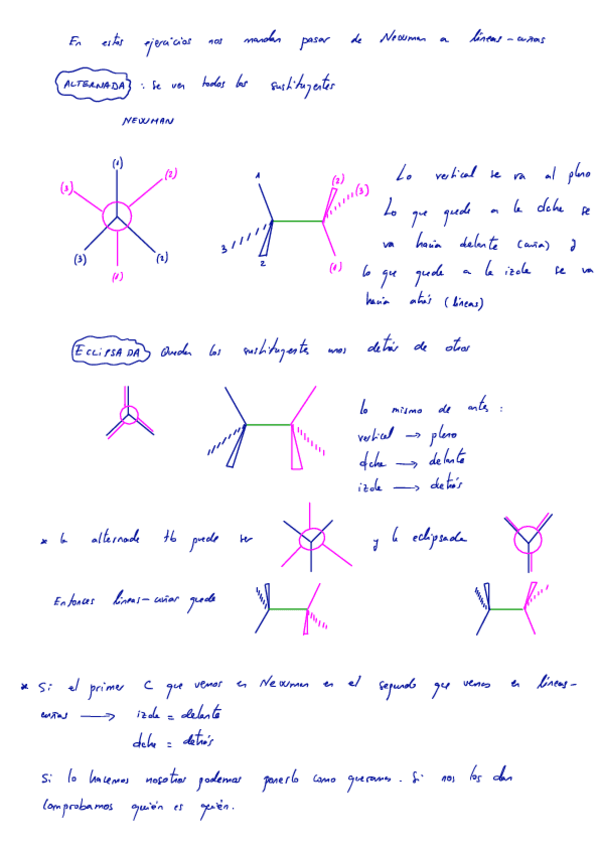 En estos ejercicios nos mandan pasar de Newman a líneas-cuñas
ALTERNADA : se ven todos los sustituyentes
NEWMAN
(1)
(2)
(3)
(3)
(2)
(1)
1
(2)
(3)
3
2
(1)
Lo vertical se va al plano
Lo que quede a la dcha se
va hacia delante (cuña) y
lo que quede a la izda se va
hacia atrás (líneas)
ECLIPSADA Quedan los sustituyentes unos detrás de otros
lo mismo de antes :
vertical → plano
dcha → delante
izda → detrás
* la alternada tb puede ser
y la eclipsada
Entonces líneas-cuñas quede
* Si el primer C que vemos en Newman en el segundo que vemos en líneas-
cuñas → izda = delante
dcha = detrás
Si lo hacemos nosotros podemos ponerlo como queramos. Si nos los dan
comprobamos quién es quién.